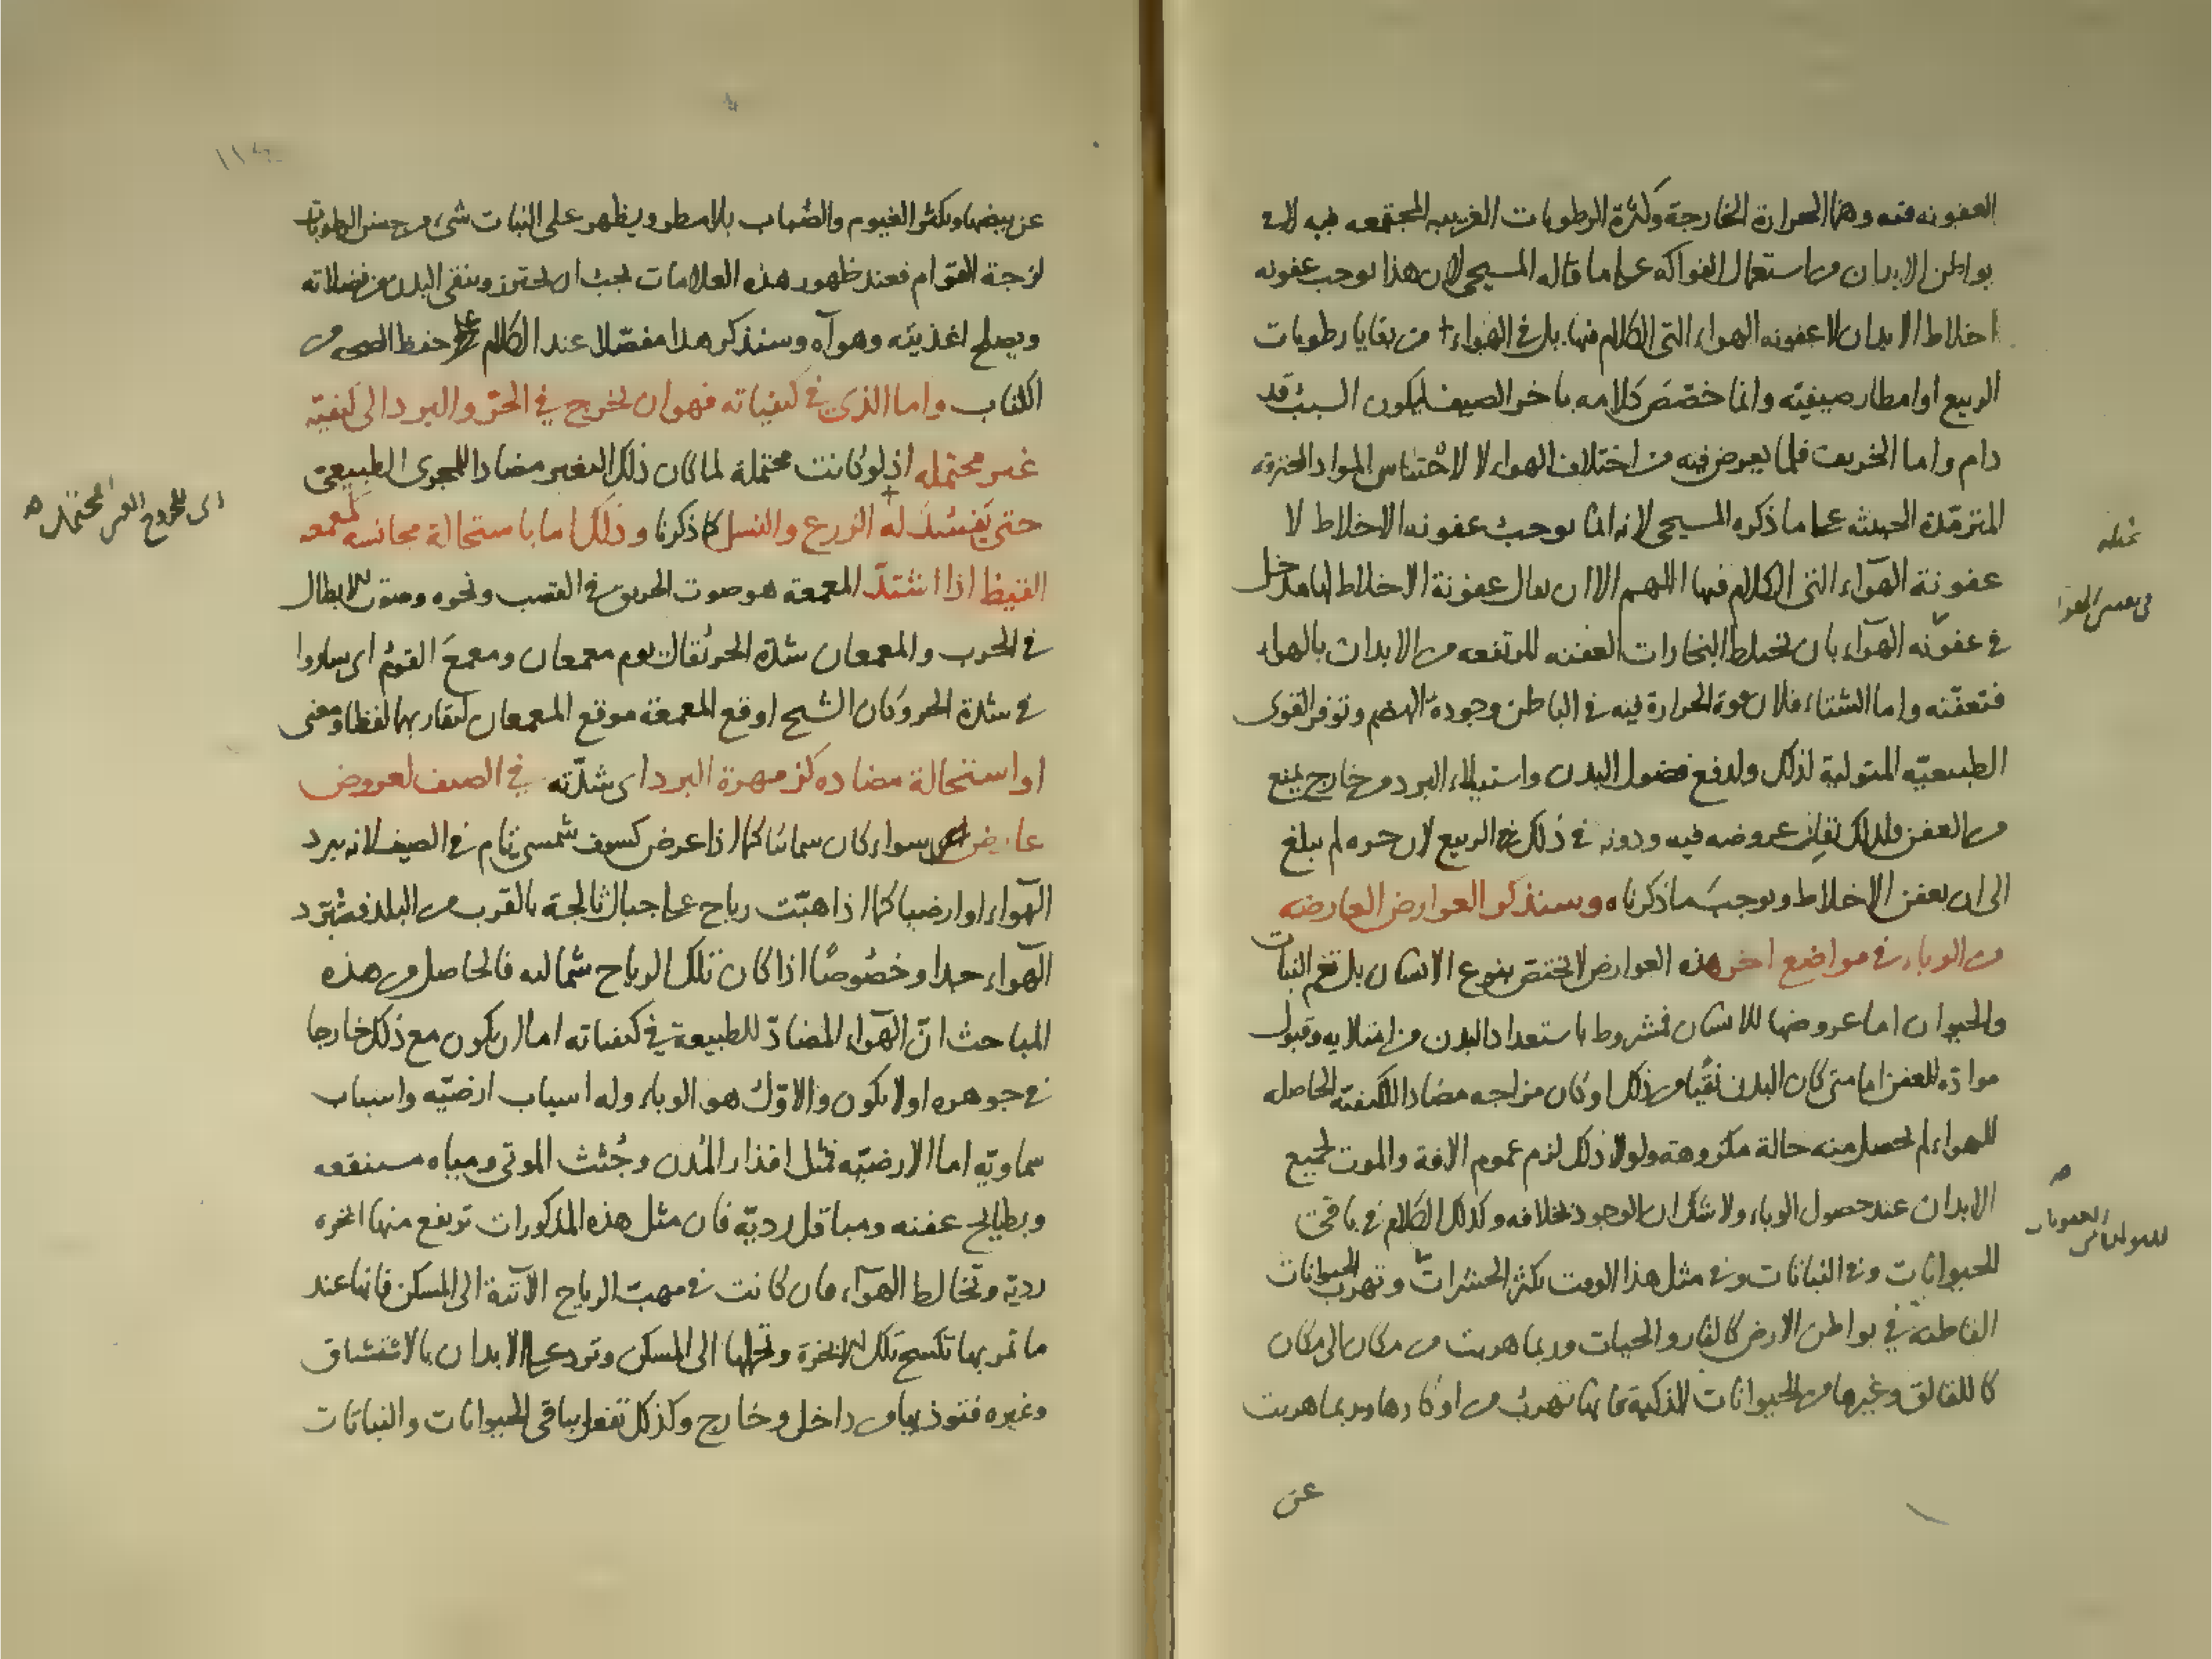 العفونه فيه وهما الحرارة الخارجة وكثرة الرطوبات الغريبه المجتمعه فيه لا في
بواطن الابدان من استعمال الفواكه على ما قاله المسيحى لان هذا يوجب عفونه
اخلاط الابدان لا عفونه الهواء التى الكلام فيها بل فى الهواء من بقايا رطوبات
الربيع او امطار صيفيّه وانما خصّص كلامه باخر الصيف ليكون السبب قد
دام واما الخريف فلما يعرض فيه من اختلاف الهواء لا لاحتباس المواد المحترقه
المترمّدة الخبيثه على ما ذكره المسيحى لانه انما يوجب عفونه الاخلاط لا
عفونة الهوآء التى الكلام فيها اللهم الا ان يقال عفونة الاخلاط لها مدخل
فى عفونه الهوآء بان يختلط البخارات العفنه المرتفعه من الابدان بالهواء
فتعفّنه واما الشتاء فلان قوة الحرارة فيه فى الباطن وجودة الهضم وتوفر القوى
الطبيعيّه المتولية لذلك ولدفع فضول البدن واستيلاء البرد من خارج يمنع
من العفن ولذلك عروضه فيه ودونه فى ذلك الربيع لان حره لم يبلغ
الى ان يعفن الاخلاط ويوجب ما ذكرناه وسنذكر العوارض العارضه
من الوباء فى مواضع اخر هذه العوارض لا تختص بنوع الانسان بل تعم النبات
والحيوان اما عروضها للانسان فمشروط باستعداد البدن من امتلايه وقبول
موادّه للعفن اما متى كان البدن نقيا من ذلك او كان مزاجه مضادا للكيفيّة الحاصله
للهواء لم يحصل منه حالة مكروهة ولولا ذلك لزم عموم الافة والموت لجميع
الابدان عند حصول الوباء ولا شك ان الوجود بخلافه وكذلك الكلام فى باقى
الحيوانات وفى النباتات وفى مثل هذا الوقت تكثر الحشرات وتهرب الحيوانات
القاطنة فى بواطن الارض كالفار والحيات وربما هربت من مكان الى مكان
كاللقالق وغيرها من الحيوانات الذكية فانها تهرب من اوكارها وربما هربت
عن
عن بيضها وتكثر الغيوم والضباب بلا مطر ويظهر على النبات شىء من جنس الرطوبات
لزجة القوام فعند ظهور هذه العلامات يجب ان يحترز وينقى البدن من فضلاته
ويصلح اغذيته وهوآه وسنذكر هذا مفصّلا عند الكلام فى حفظ الصحه من
الكتاب واما الذى فى كيفياته فهو ان يخرج فى الحرّ والبرد الى كيفيّة
غير محتمله اذ لو كانت محتملة لما كان ذلك التغير مضادا للمجرى الطبيعى
حتى يفسد له الزرع والنسل كما ذكرنا وذلك اما باستحالة مجانسه كمعمعه
القيظ اذا اشتدّ المعمعة هو صوت الحريق فى القصب ونحوه وصوت الابطال
فى الحرب والمعمعان شدة الحر يُقال يوم معمعان ومعمعَ القومُ اى ساروا
فى شدة الحر وكان الشيخ اوقع المعمعة موقع المعمعان لتقاربهما لفظا ومعنى
او استحالة مضاده كزمهرة البرد اى شدّته فى الصيف لعروض
عارض سواء كان سمائيا كما اذا عرض كسوف شمسى تام فى الصيف لانه يبرد
الهوآء او ارضيا كما اذا هبّت رياح على جبال ثالجة بالقرب من البلد فتبرّد
الهوآء جدا وخصُوصًا اذا كان تلك الرياح شماليه فالحاصل من هذه
المباحث انّ الهوآء المضادّ للطبيعة فى كيفياته اما ان يكون مع ذلك خارجا
فى جوهره او لا يكون والاوّل هو الوباء وله اسباب ارضيّه واسباب
سماويّه اما الارضيّه فمثل اقذار المُدن وجُثث الموتى ومياه مستنقعه
وبطايح عفنه ومباقل رديّه فان مثل هذه المذكورات ترتفع منها ابخره
رديّه وتخالط الهوآء فان كانت فى مهبّ الرياح الآتية الى المسكن فانها عند
ما تمر بها تكسح تلك الابخرة وتحملها الى المسكن وتورد على الابدان بالاستنشاق
وغيره فتوذيها من داخل وخارج وكذلك تفعل بباقى الحيوانات والنباتات
اى للخروج الغير المحتمله